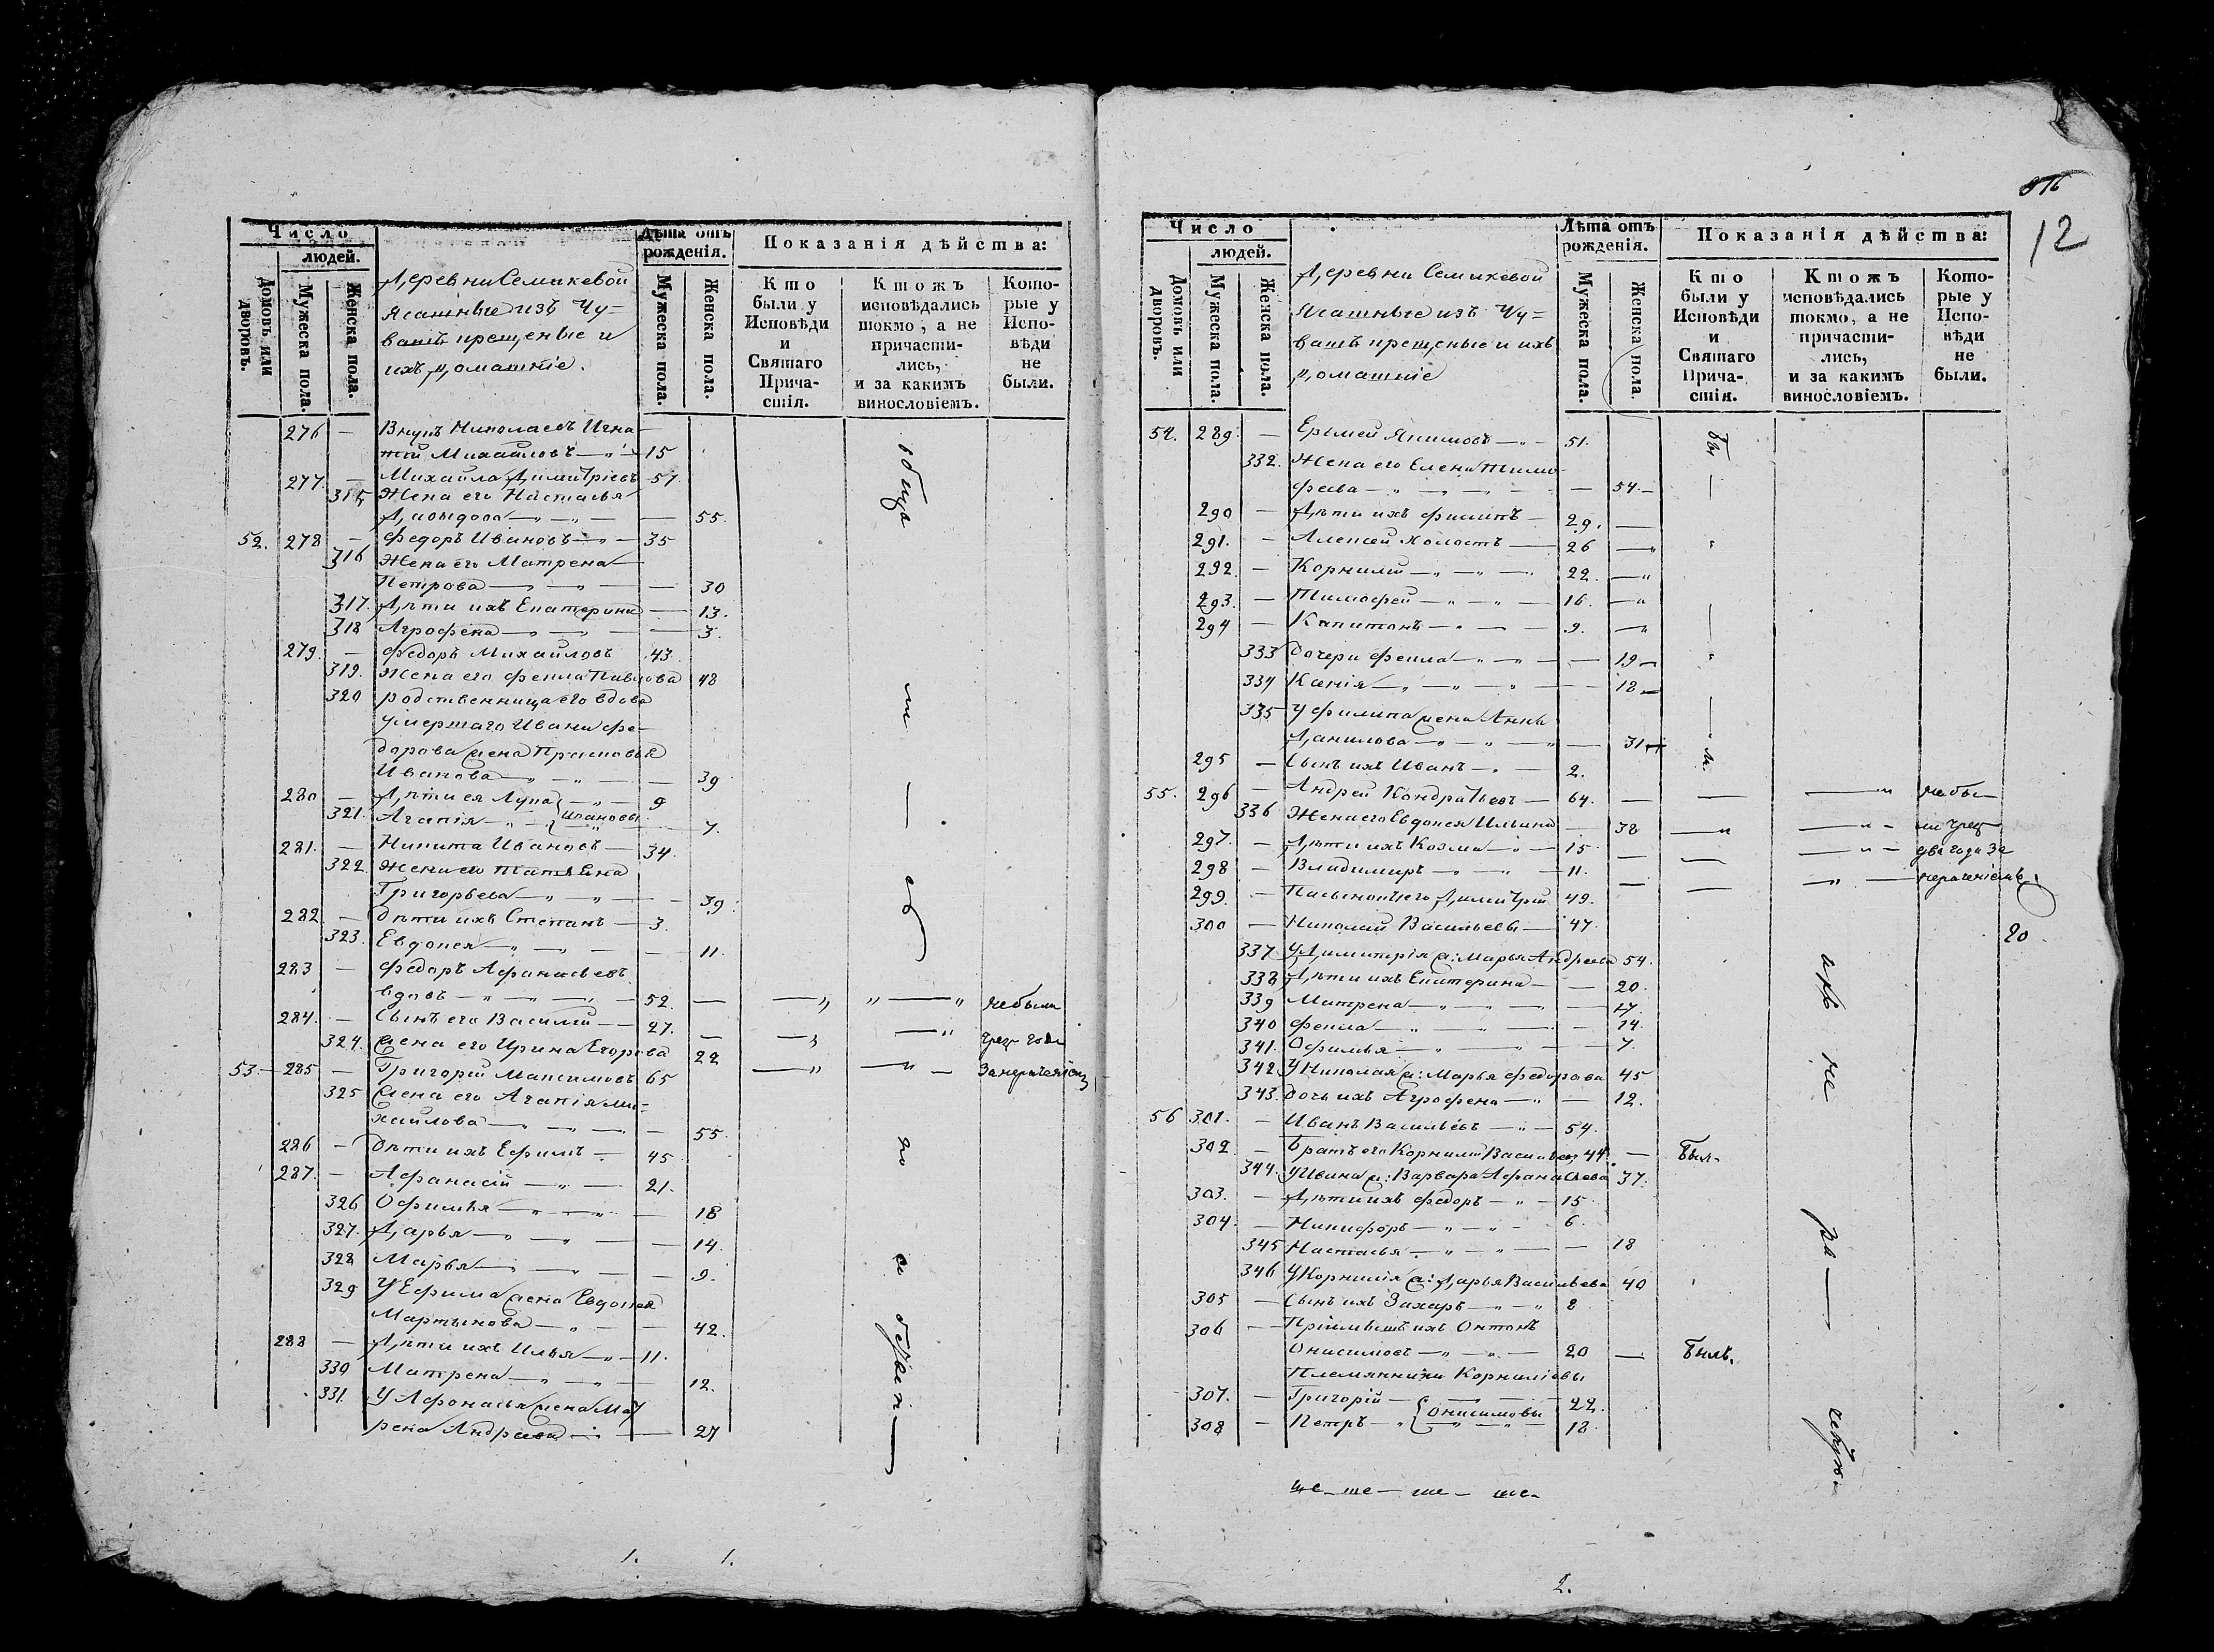 Число
людей.
Домовъ или дворовъ.
Мужеска пола.
Женска пола.
Деревни Семикевой
Ясашные изъ Чу=
вашъ крещеные и
ихъ домашніе.
Лѣта отъ рожденія.
Мужеска пола.
Женска пола.
Показанія дѣйства:
Кто были у Исповѣди и Святаго Причастія.
Ктожъ исповѣдались токмо, а не причастились, и за какимъ винословіемъ.
Которые у Исповѣди не были.
276 — Внукъ Николаевъ Игна
тій Михайловъ — 15
277. — Михайла Димитріевъ 57
315 Жена его Настасья
55.
52. 278 — Федоръ Ивановъ — 35
316 Жена его Матрена
Петрова — 30
317. Дѣти ихъ Екатерина — 13.
318 Агрофена — 3.
279. — Федоръ Михайловъ 43
319. Жена его Фекла Павлова 48
320 родственница его вдова
умершаго Ивана Фе-
дорова жена Прасковья
Иванова — 39
280 — Дѣти ея Лупа — 9
321. Агапія — Ивановы 7.
281. — Никита Ивановъ — 34.
322 Жена его Татьяна
Григорьева — 39.
282. — Дѣти ихъ Степанъ — 3.
323. Евдокея — 11.
283 — Федоръ Афанасьевъ
вдовъ — 52. — не были
284. — Сынъ его Василій — 27.
324. Жена его Ирина Егорова 22
53. — 285 — Григорій Максимовъ 65
325 Жена его Агапія Ми=
хайлова — 55.
286 — Дѣти ихъ Ефимъ — 45
287. — Афанасій — 21.
326 Офимья — 18
327. Дарья — 14.
328 Марья — 9.
329 У Ефима жена Евдокея
Мартынова — 42.
288 — Дѣти ихъ Илья — 11.
330 Матрена — 12.
331. У Афонасья жена Мат
рена Андреева — 27
1. 1.
12
Число
людей.
Домовъ или дворовъ.
Мужеска пола.
Женска пола.
Деревни Семикевой
Ясашные изъ Чу=
вашъ крещеные и ихъ
домашніе
Лѣта отъ рожденія.
Мужеска пола.
Женска пола.
Показанія дѣйства:
Кто были у Исповѣди и Святаго Причастія.
Ктожъ исповѣдались токмо, а не причастились, и за какимъ винословіемъ.
Которые у Исповѣди не были.
54. 289. — Еремей Якимовъ — 51.
332. Жена его Елена Тимо
феева — 54.
290 — Дѣти ихъ Филипъ — 29.
291. — Алексей холостъ — 26
292. — Корнилій — 22.
293. — Тимофей — 16.
294 — Капитонъ — 9.
333 Дочери Фекла — 19
334 Ксенія — 18
335 У Филипа жена Анна
Данилова — 31
295 — Сынъ ихъ Иванъ — 2.
55. 296 — Андрей Кондратьевъ — 64. — не бы-
336 Жена его Евдокея Ильина — 38 — ли чрез
297. — Дѣти ихъ Козма — 15 — два года за
298 — Владимиръ — 11. — нераченіемъ.
299. — Пасынки его Димитрій 49.
300 — Николай Васильевы — 47.
20
337 У Димитрія ж: Марья Андреева 54.
338 Дѣти ихъ Екатерина — 20.
339 Матрена — 17.
340 Фекла — 14.
341. Офимья — 7.
342 У Николая ж: Марья Федорова 45
343. Дочь ихъ Агрофена — 12.
56 301. — Иванъ Васильевъ — 54.
302. — Братъ его Корнилій Васильевъ 44. — Был.
344. У Ивана ж: Варвара Афанасьева 37.
303. — Дѣти ихъ Федоръ — 15
304. — Никифоръ — 6.
345 Настасья — 18
346 У Корнилія ж: Дарья Васильева 40
305 — Сынъ ихъ Захаръ — 8
306 — Пріимышъ ихъ Онтонъ
Онисимовъ — 20 — Былъ.
Племянники Корниліевы
307. — Григорій — 22.
308 — Петръ — Онисимовы 18.
ше — ше — ше — ше —
2.